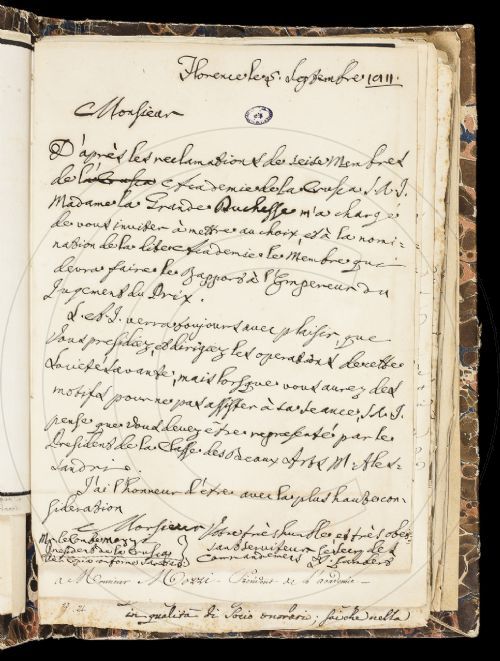 Florence le 5. Septembre 1811.
Monsieur
D'après les reclamations de seise Membres
de la Crusca Academie de la Crusca S. A. I.
Madame la Grande Duchesse m'a chargé
de vous inviter à mettre au choix, et à la nomi-
nation de la dite Academie le Membre qui
devra faire le Rapport à l'Empereur du
Jugement du Prix.
S. A. I. verra toujours avec plaisir, que
vous presidiez, et dirigiez les operations de cette
Societé savante, mais lorsque vous aurez des
motifs pour ne pas assister à sa seance, S. A. I.
pense que vous devez être representé par le
President de la Classe des Beaux Arts M. Ales-
sandri.
J'ai l'honneur d'être avec la plus haute con-
sideration
Monsieur Votre très humble et très obeis-
President de la Crusca sant serviteur
commandemens
a Monsieur Mozzi - President de l'academie -
in qualità di Socio onorario; sicchè nella